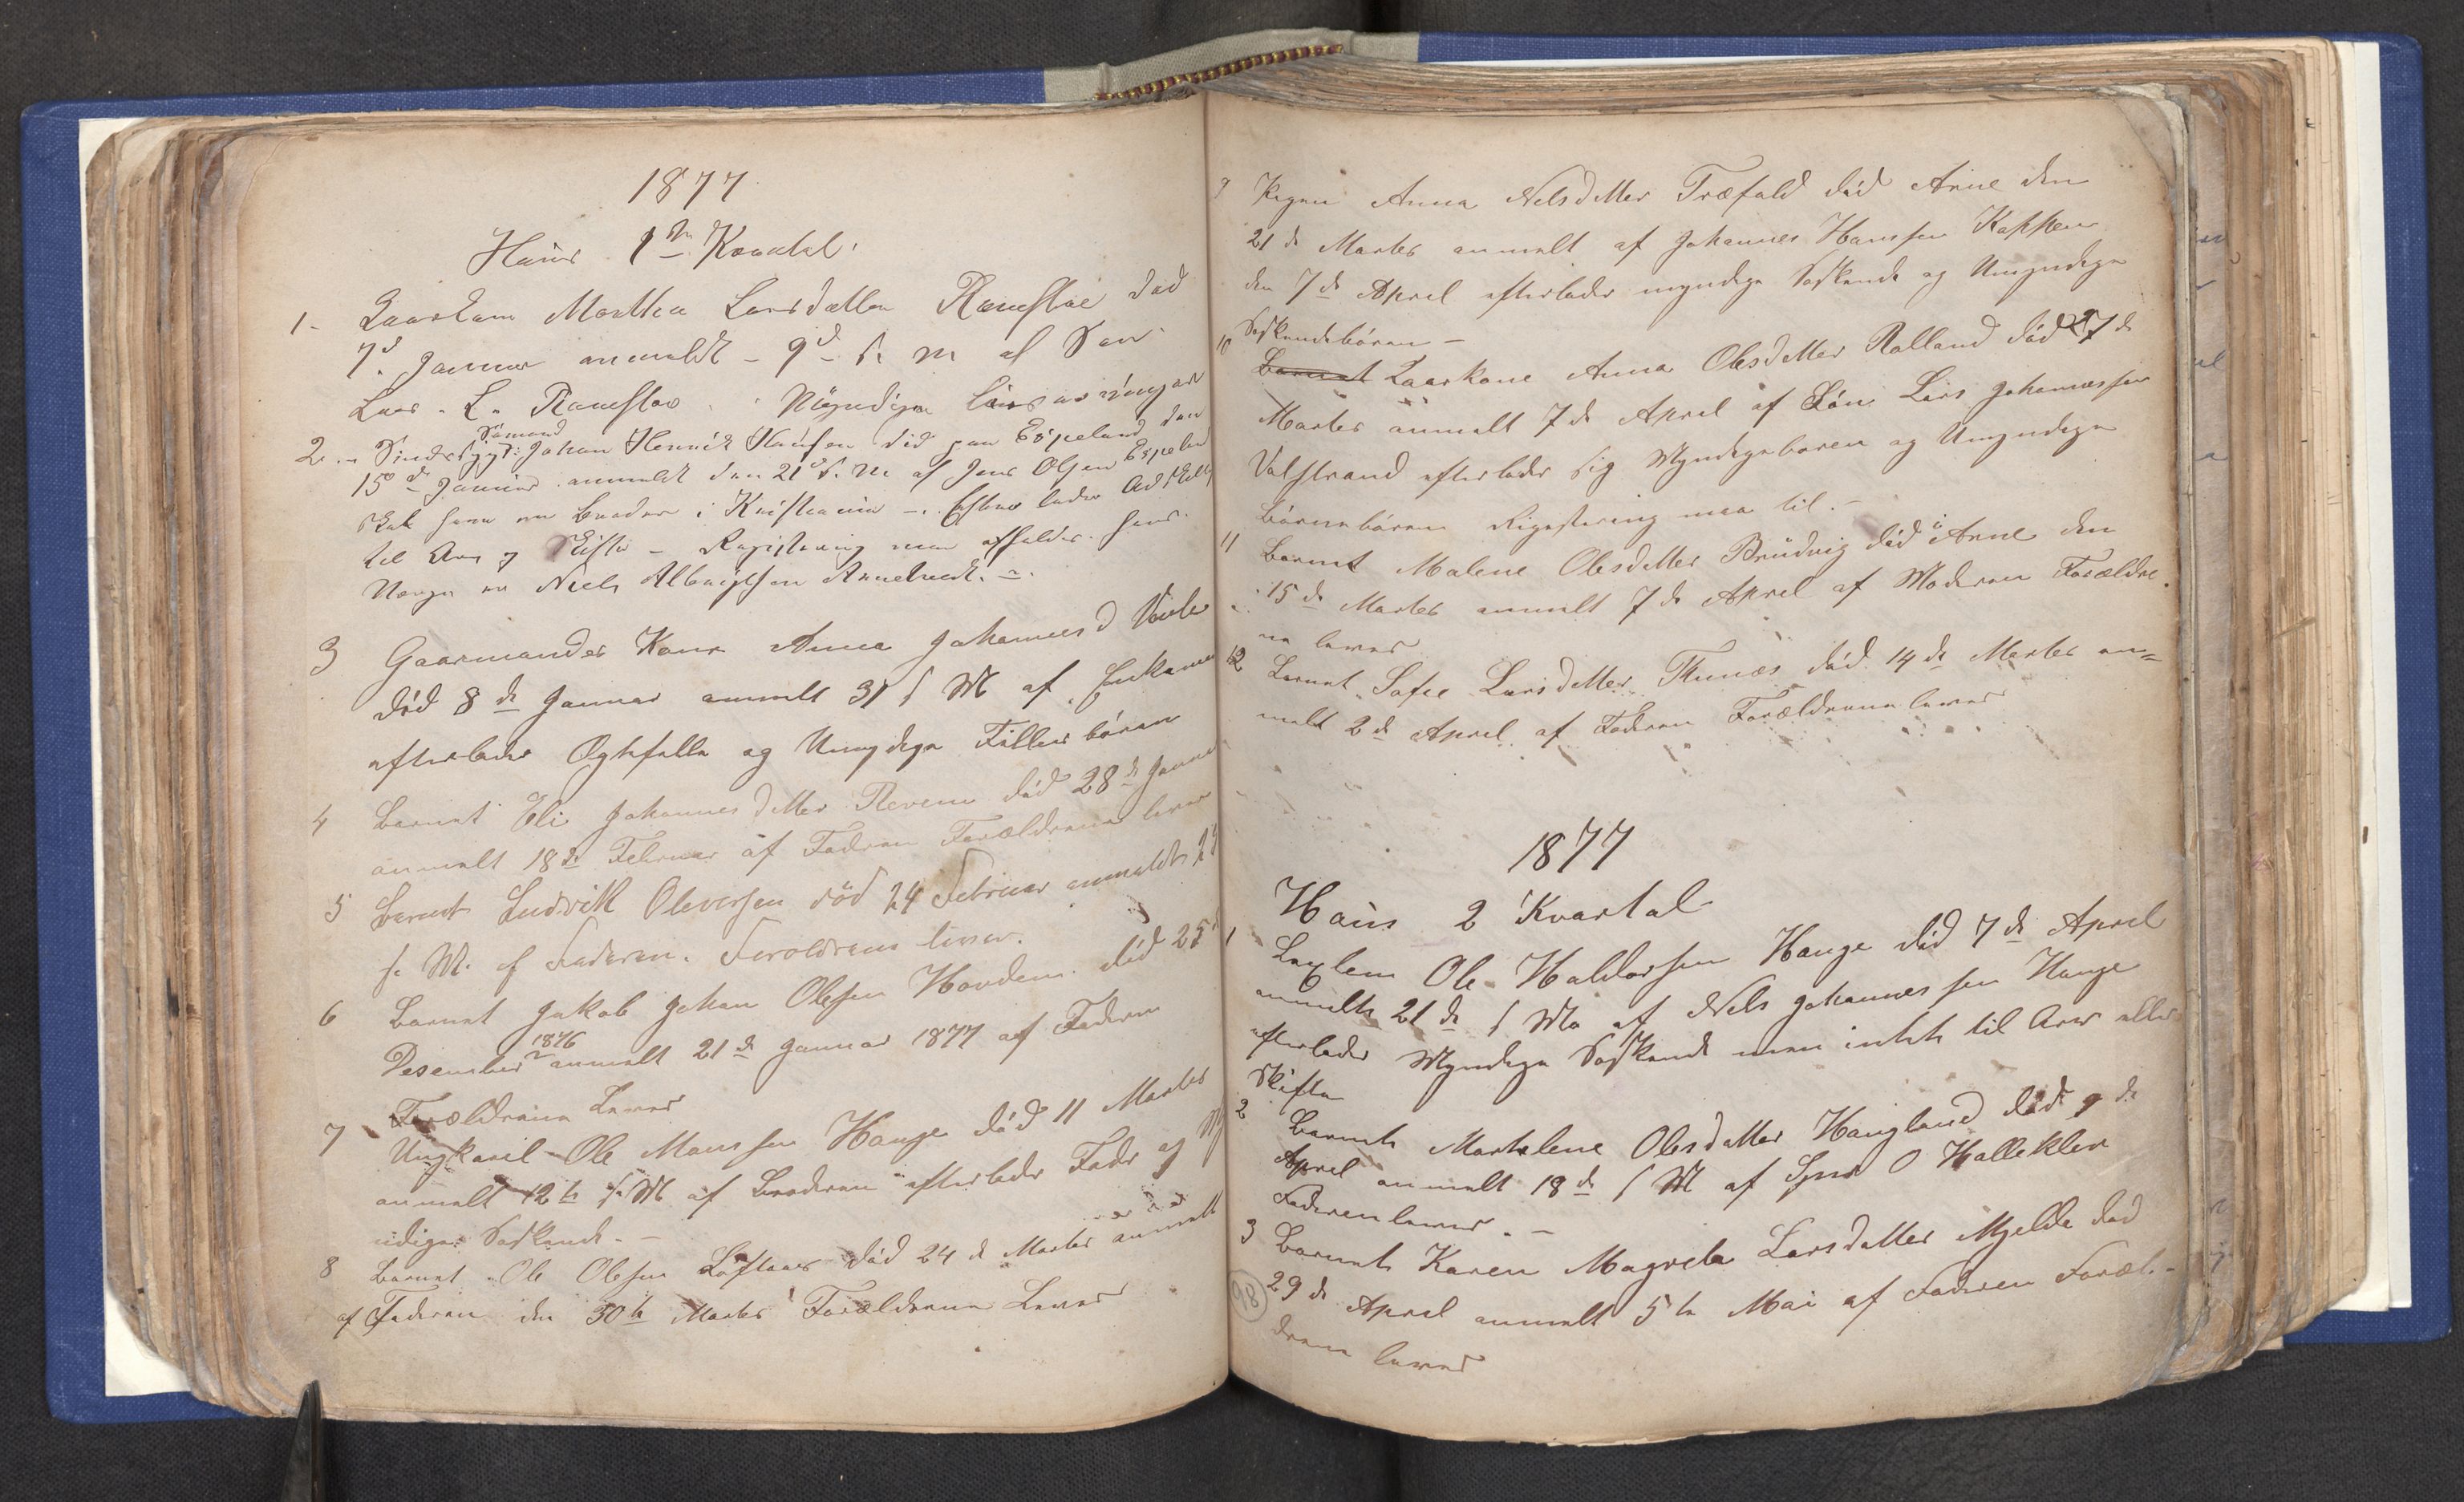 1877
Haus 1te Kvartal.
1. Kaarkone Martha Larsdatter Ramslae død
7d Januar anmeldt 9d s. M. af Søn
Lars L. Ramslae Myndige Livsarvinger
2. Sindssyge Sømand Johan Henrik Hansen död paa Espeland den
15de Januar anmeldt den 21d s. M. af Jens Olsen Espeland
skal have en Broder i Kristiania Efterlader
til Arv og Skifte - Registrering maa afholdes. hans
Værge er Niels Albrigtsen Arnetveit.
3 Gaarmandes Kone Anna Johannesd
död 8de Januar anmelt 31 s M af Enkeman
efterlader Ægtefelle og Umyndige Fellesbören
4 Barnet Eli Johannesdatter Revem död 28de Januar
anmelt 18de Februar af Faderen Forældrene lever
5 Barnet Ludvik Oleversen död 24 Februar anmeldt
s. M. af Faderen. Foreldrene lever.
6 Barnet Jakob Johan Olesen Hovden död 25
Desember 1876 anmelt 21de Januar 1877 af Faderen
Forældrene Lever
7 Ungkaril Ole Monssen Hauge död 11 Martes
anmelt 12te s. M af Broderen efterlader Fader og My
ndige Sødskende.
8 Barnet Ole Olesen Loftaas död 24 de Martes anmelt
af Faderen den 30te Martes Forældrene Lever
9 Pigen Anna Nelsdatter Træfald död Arne den
21 de Martes anmelt af Johannes Hanssen Kappen
den 7de Aprel efterlader myndige Sødskende og Umyndige
Sødskendebören
10 Barnet Kaarkone Anna Olesdatter Rølland död 27de
Martes anmelt 7de Aprel af Sön Lars Johannessen
Valstrand efterlader sig Myndigebören og Umyndige
Börnebören Rigestering maa til.
11 Barnet Malene Olesdatter Brudvig död i Arne den
15de Martes anmelt 7de Aprel af Moderen Forældre
ne lever
12 Barnet Sofie Larsdatter Thunæs död 14de Martes an=
melt 2de Aprel af Faderen Forældrene lever
1877
Haus 2 Kvartal
1 Læglem Ole Haldorsen Hauge död 7de Aprel
anmelt 21de s Ma af Nels Johannessen Hauge
efterlader Myndige Sødskende men intet til Arv eller
Skifte
2 Barnet Martalene Olesdatter Haugland död 9de
Aprel anmelt 18de s M af O Halleklev
Faderen lever. -
3 Barnet Karen Magreta Larsdatter Mjelde död
29de Aprel anmelt 5te Mai af Faderen Foræl-
drene lever
98